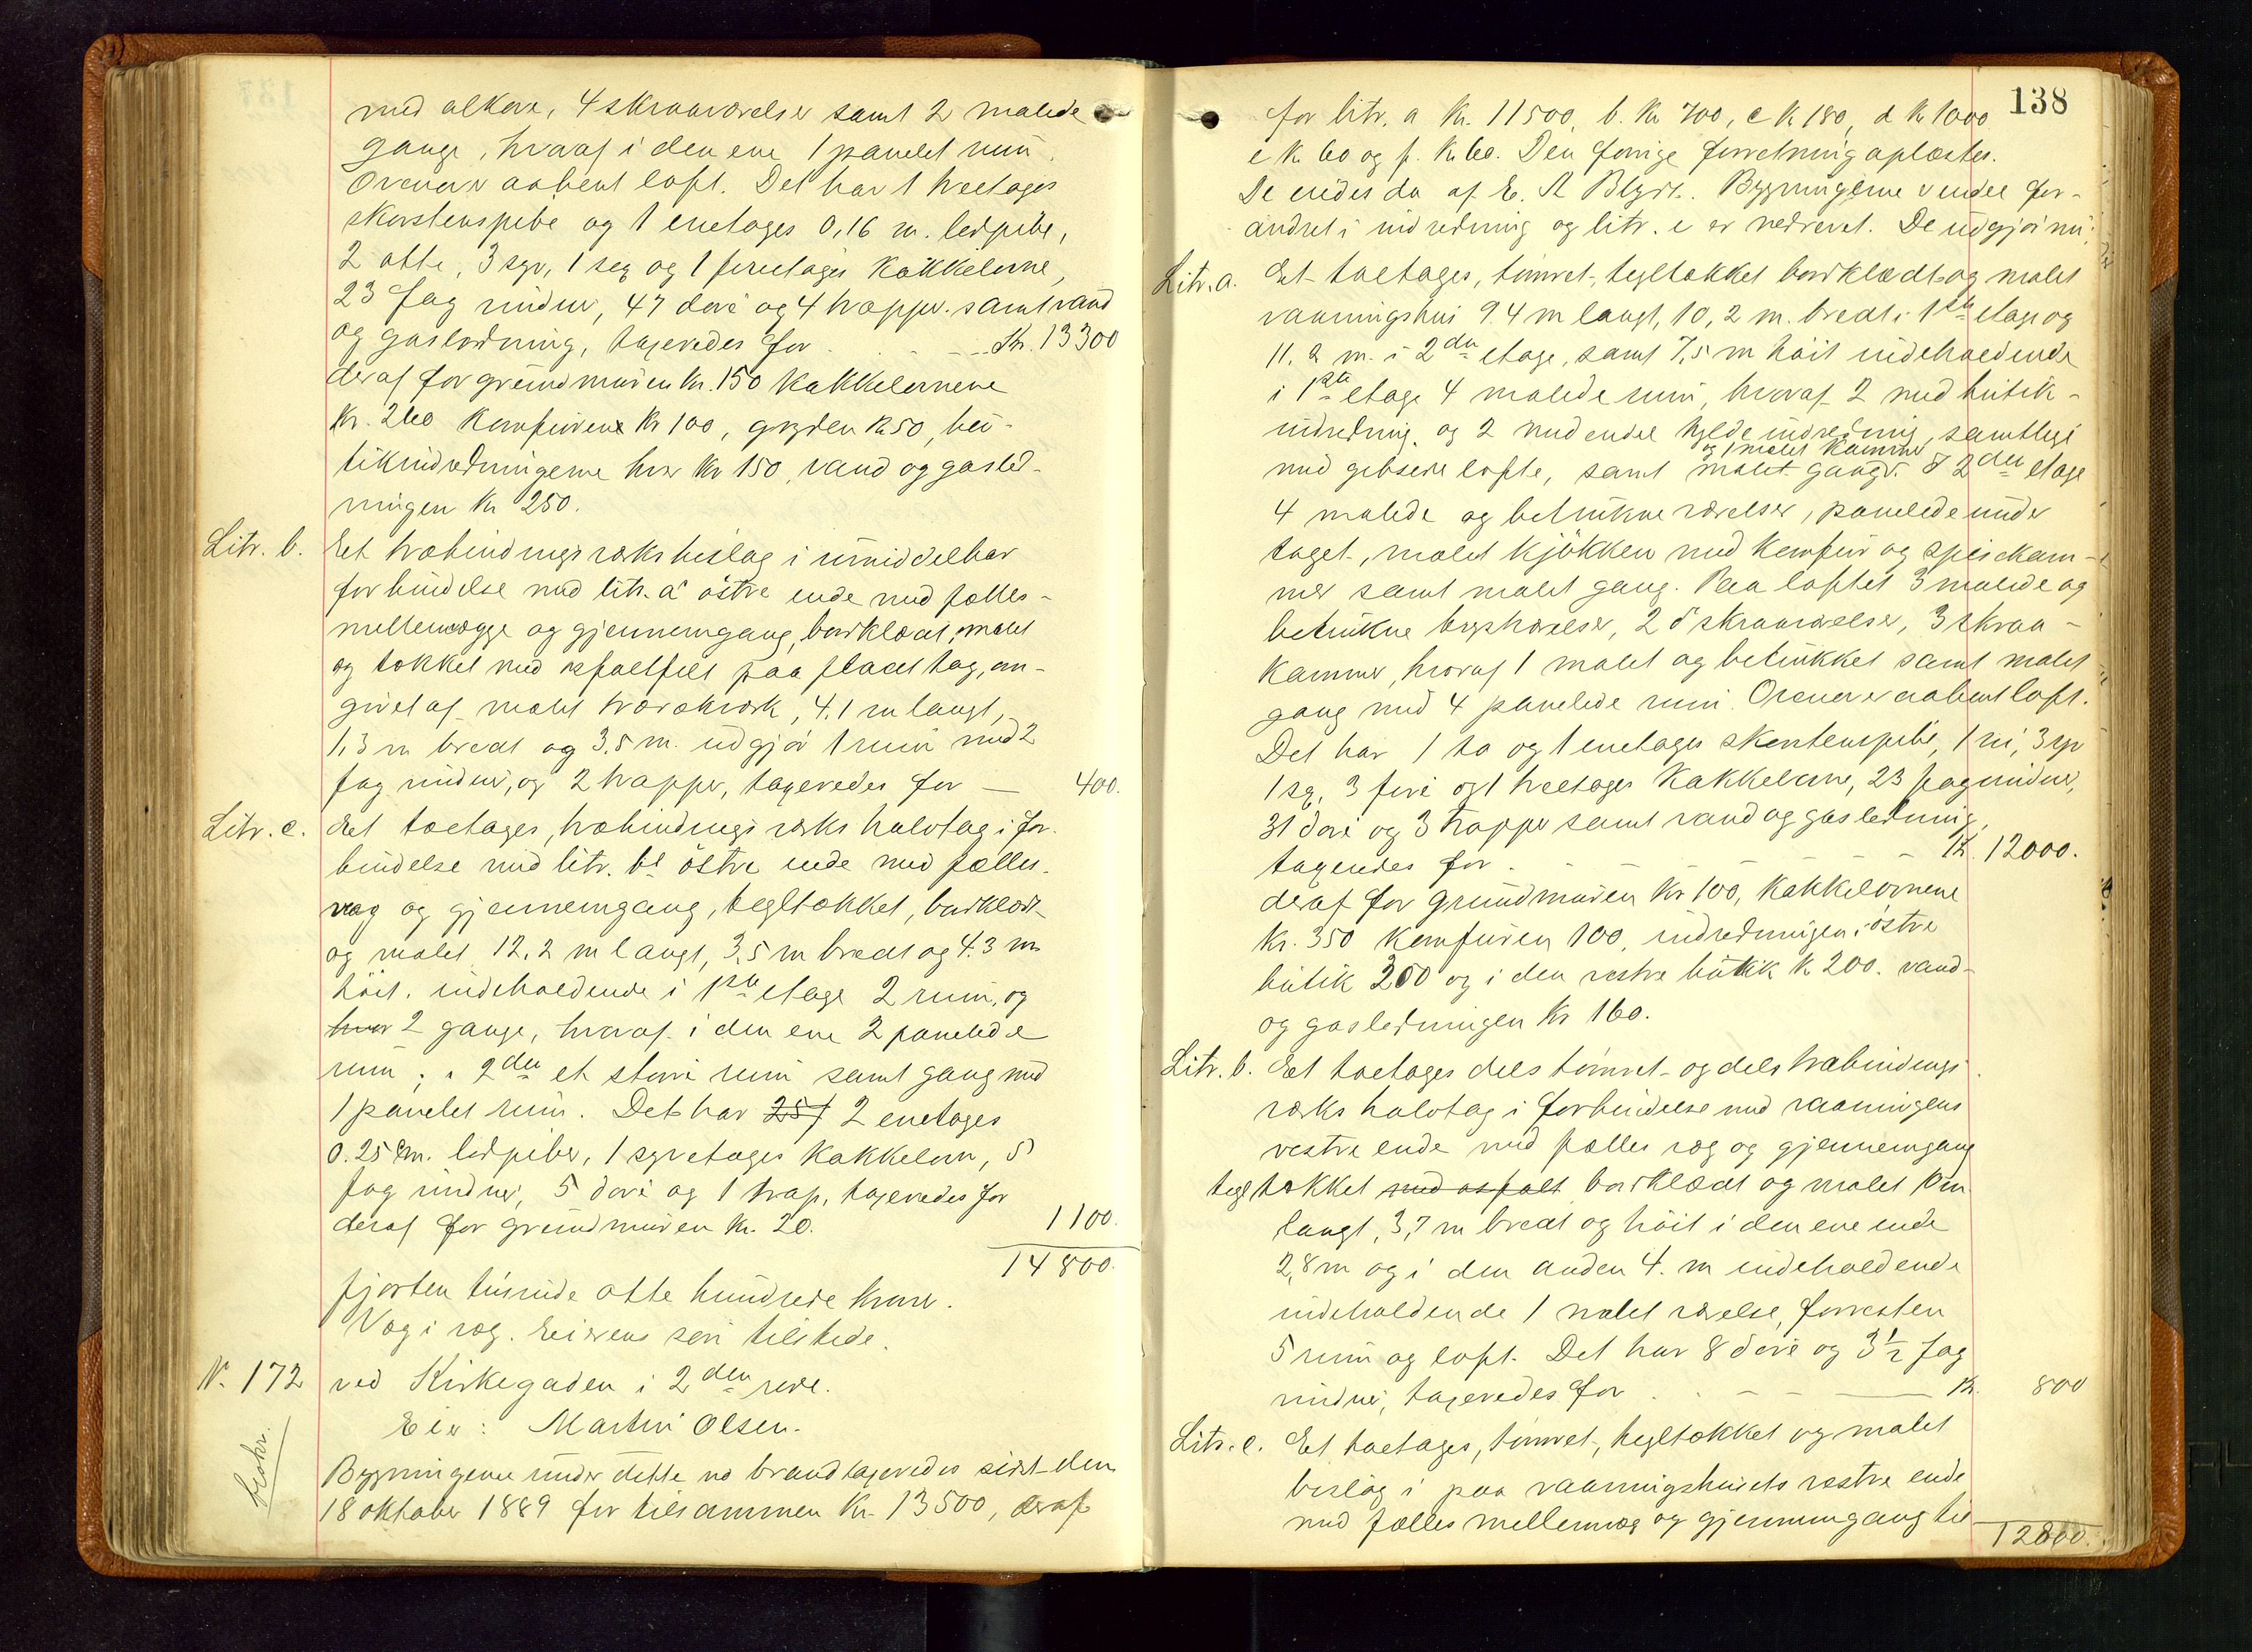 med alkove, 4 skraaværelser samt 2 malede
gange, hvoraf i den ene 1 panelet rum.
Ovenover aabent loft. Det har 1 treetages
skorstenspibe og 1 enetages 0,16 m. ledpibe,
2 otte, 3 syv, 1 sex og 1 fireetages kakkelovne,
23 fag vinduer, 47 døre og 4 trapper samt vand
og gasledning, taxeredes for . . - - Kr. 13300
deraf for grundmuren Kr. 150 kakkelovnene
Kr. 260 komfurene Kr 100, gryden Kr 50, bu-
tikindredningerne hver Kr 150, vand og gasled-
ningen Kr 250.
Litr. b. Et træbindingsværks bislag i umiddelbar
forbindelse med litr. a's østre ende med fælles-
mellemvægge og gjennemgang, bordklædt, malet
og tækket med asfaltfilt paa fladt tag, om-
givet af malet trærækværk, 4.1 m langt,
1,3 m bredt og 3,5 m. udgjør 1 rum med 2
fag vinduer, og 2 trapper, taxeredes for — 400.
Litr. c. Et toetages, træbindingsværks halvtag i for-
bindelse med litr. b's østre ende med fælles-
væg og gjennemgang, tegltækket, bordklædt
og malet 12,2 m langt, 3,5 m bredt og 4.3 m
høit. indeholdende i 1ste etage 2 rum, og
hver 2 gange, hvoraf i den ene 2 panelede
rum; i 2den et større rum samt gang med
1 panelet rum. Det har 25 f 2 enetages
0.25 m. ledpiber, 1 syvetages kakkelovn, 5
fag vinduer, 5 døre og 1 trap, taxeredes for
deraf for grundmuren Kr. 20. 1100.
14 800.
fjorten tusinde otte hundrede kroner.
Væg i væg. Eierens søn tilstede.
N. 172 ved Kirkegaden i 2den rode.
Eier: Martin Olsen.
beskr.
Bygningerne under dette no brandtaxeredes sidst den
18 oktober 1889 for tilsammen Kr. 13500, deraf
138
for litr. a Kr. 11500, b. Kr 700, c K 180, d Kr 1000
e Kr 60 og f. Kr 60. Den forrige forretning oplæstes.
De eiedes da af E. A Blyst. Bygningerne endel for-
andret i indredning og litr. e er nedrevet. De udgjør nu:
Litr. a. Et toetages, tømret, tegltækket bordklædt og malet
vaaningshus 9.4 m langt, 10,2 m. bredt i 1ste etage og
11.2 m. i 2den etage, samt 7,5 m høit indeholdende
i 1ste etage 4 malede rum, hvoraf 2 med butik-
indredning og 2 med endel hylde indredning, samtlige
og 1 malet kammer
med gibsede lofte, samt malet gang. I 2den etage
4 malede og betrukne værelser, panelede under
taget, malet kjøkken med komfur og spiskam-
mer samt malet gang. Paa loftet 3 malede og
betrukne kvistværelser, 2 skraaværelser, 3 skraa-
kammer, hvoraf 1 malet og betrukket samt malet
gang med 4 panelede rum. Ovenover aabent loft.
Det har 1 to og 1 enetages skorstenspibe, 1 ni, 3 syv
1 sex, 3 fire og 1 treetages kakkelovne, 23 fag vinduer,
31 døre og 3 trapper samt vand og gasledning,
taxeredes for . - - - - - Kr. 12000.
deraf for grundmuren Kr 100, kakkelovnene
Kr. 350 komfuren 100, indredningen i østre
butik 200 og i den vestre butik K 200. vand-
og gasledningen Kr 160.
Litr. b. Et toetages dels tømret- og dels træbindings
værks halvtag i forbindelse med vaaningens
vestre ende med fælles væg og gjennemgang
tegl tækket med asfalt bordklædt og malet
langt, 3,7 m bredt og høit i den ene ende
2,8 m og i den anden 4. m indeholdende
indeholdende 1 malet værelse, forresten
5 rum og loft. Det har 8 døre og 3 1/2 fag
vinduer, taxeredes for . . - - — Kr. 800
Litr. c. Et toetages, tømret, tegltækket og malet
bislag i paa vaaningshusets vestre ende
med fælles mellemvæg og gjennemgang til
12800.